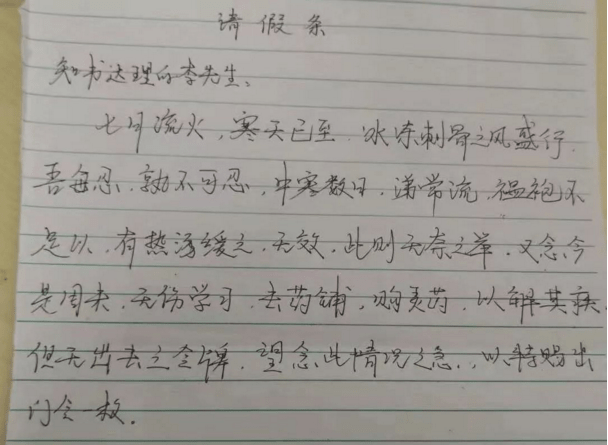 请假条
知书达理的李先生、
七月流火,寒天已至.冰冻刺骨之风盛行.
吾每忍,孰不可忍,中寒数日.涕常流.缊袍不
足以.有热汤缓之.无效.此则无奈之举.又念今
是周末.无伤学习.去药铺,购灵药,以解其疾.
但无出去之令牌.望念此情况之急.,以特赐出
门令一枚.